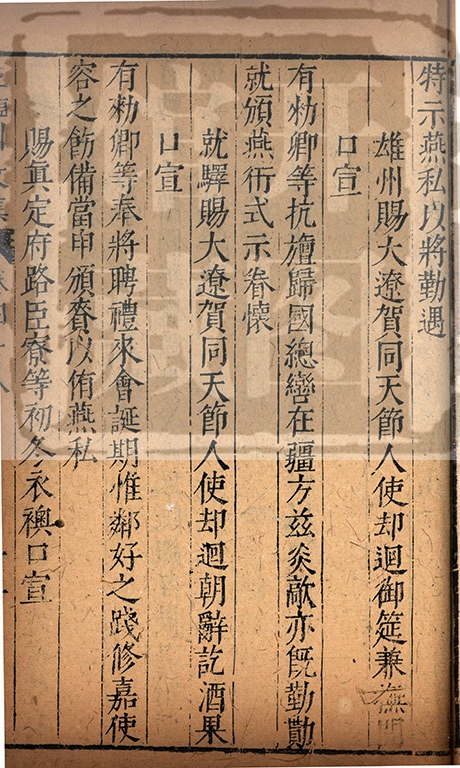 特示燕私以將勤遇
雄州賜大遼賀同天節人使却迴御筵兼撫問
口宣
有勑卿等抗旜歸國總轡在疆方兹炎歊亦旣勤勩
就頒燕衎式示眷懷
就驛賜大遼賀同天節人使却迴朝辭訖酒果
口宣
有勑卿等奉將聘禮來會誕期惟鄰好之踐修嘉使
容之飭備當申頒賚以侑燕私
賜眞定府路臣寮等初冬衣襖口宣